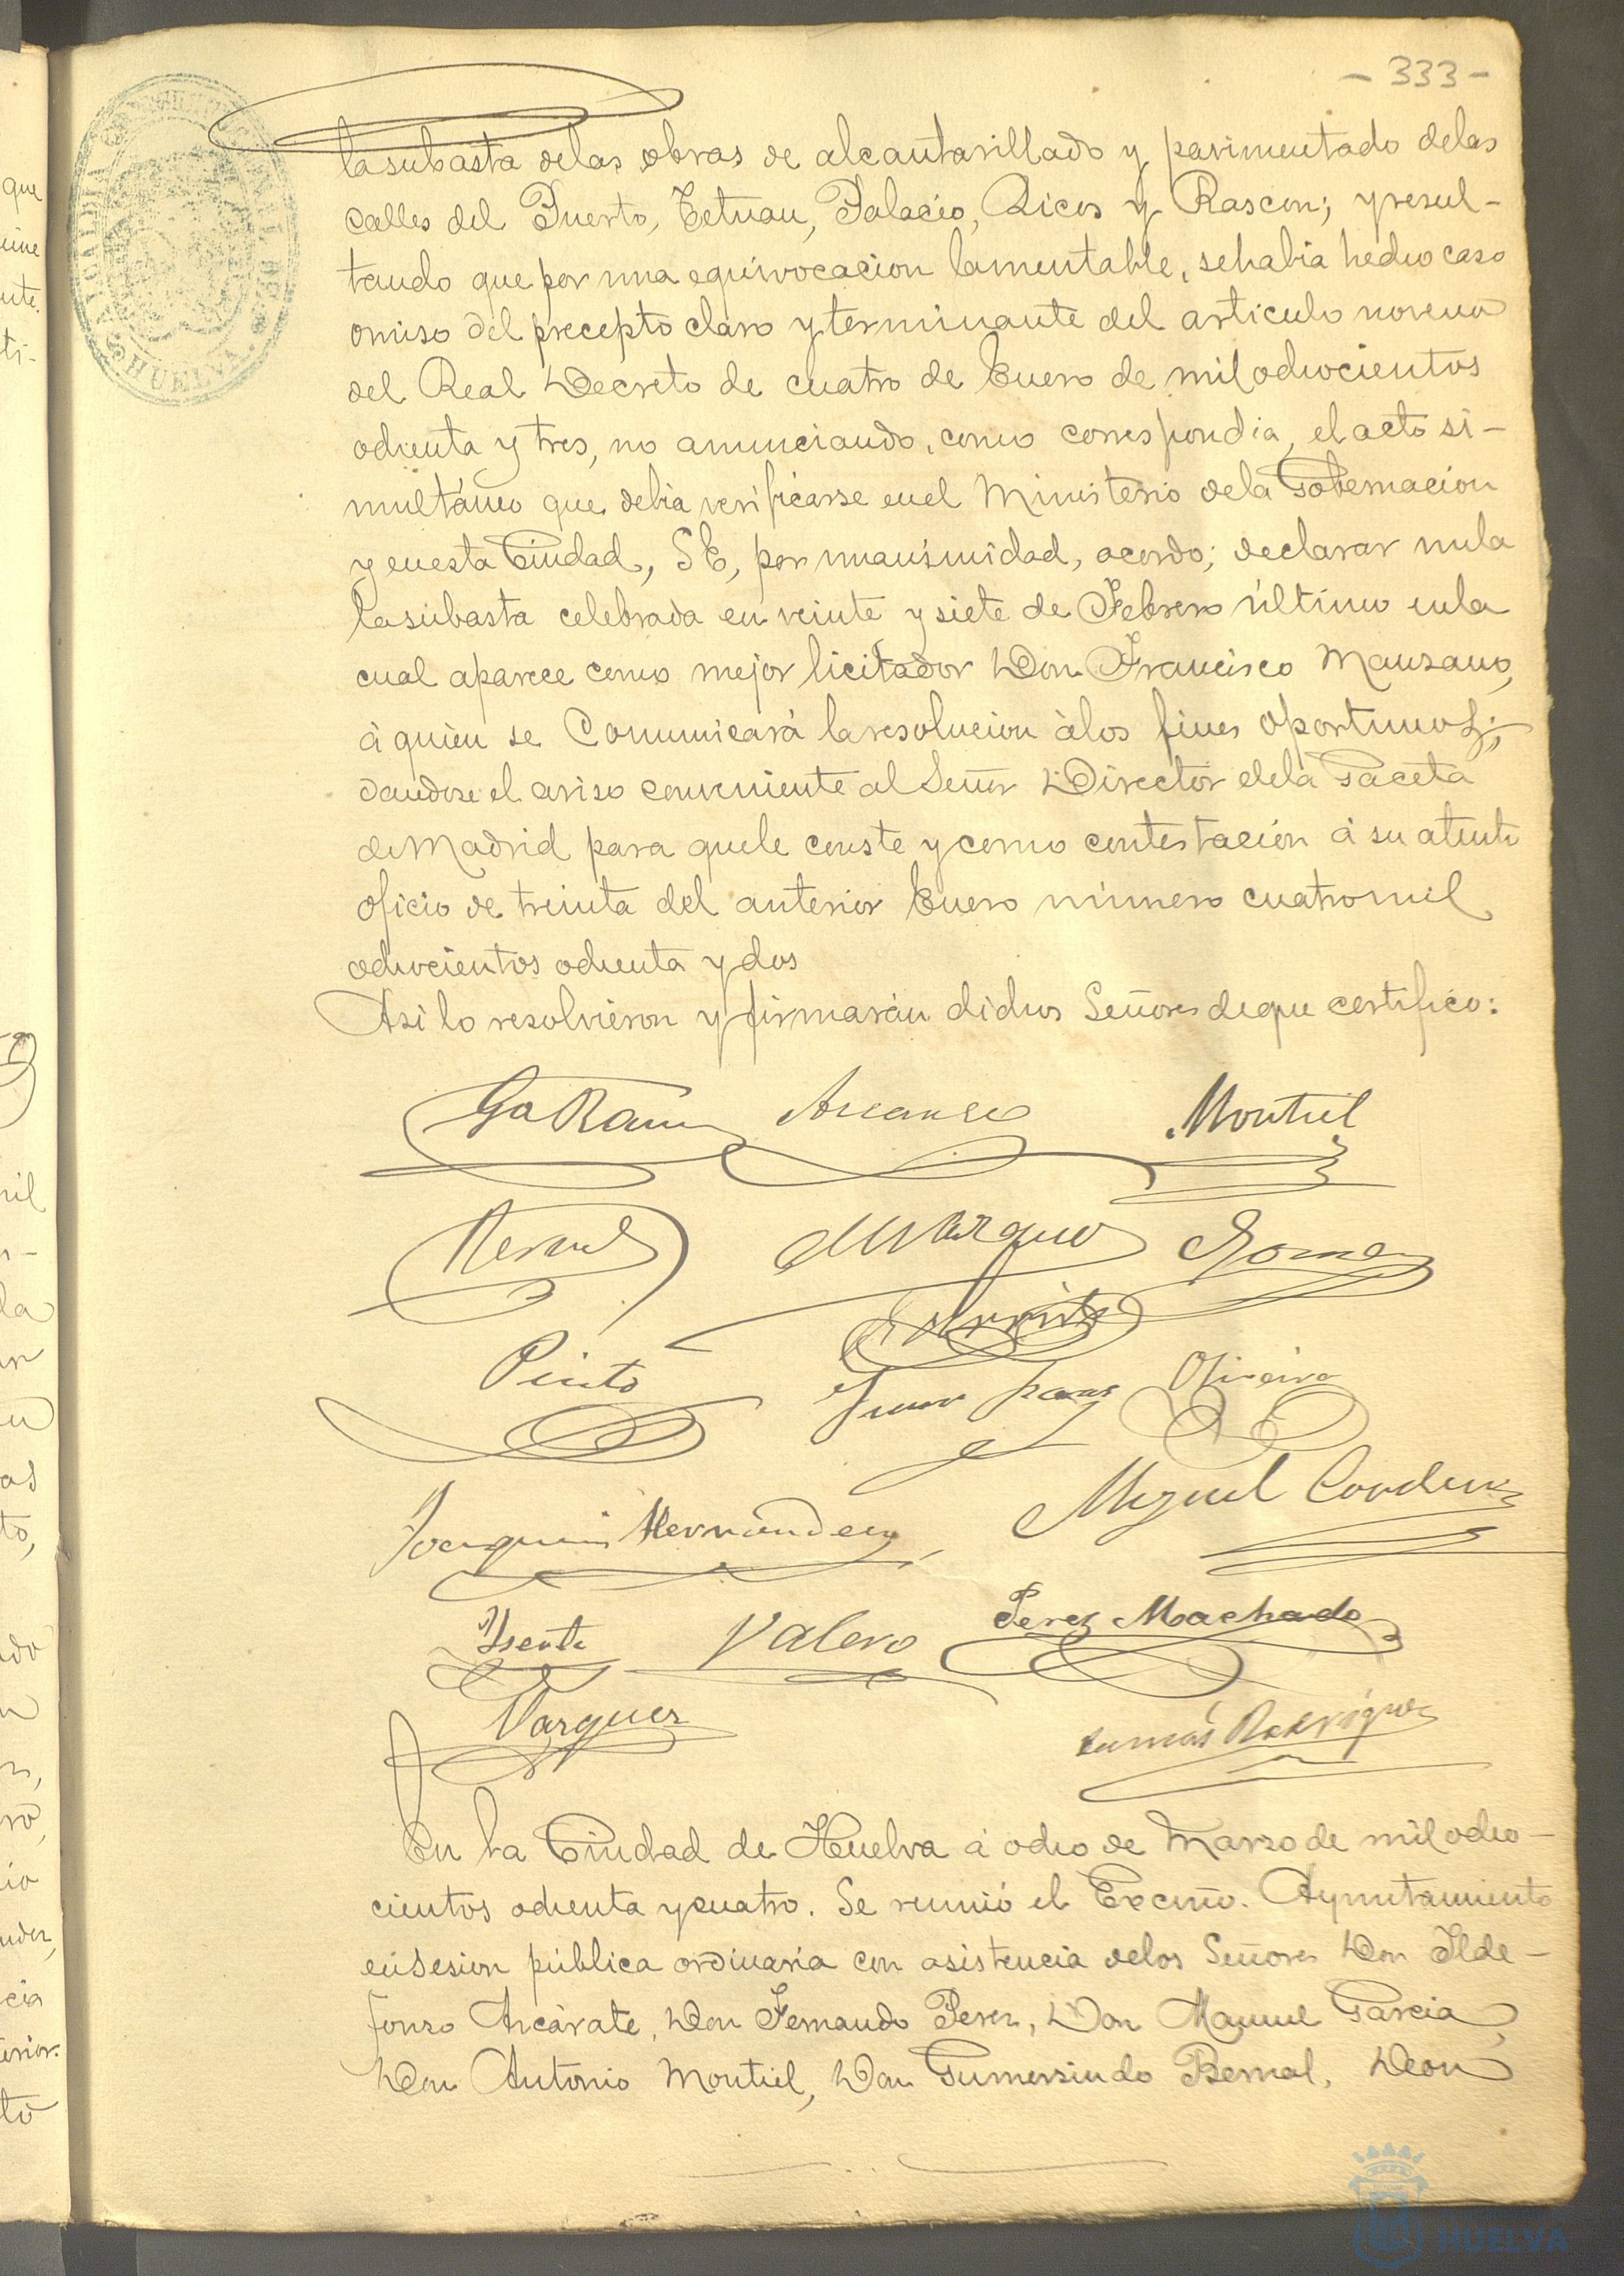 - 333 -
ALCALDIA CONSTITUCIONAL DE HUELVA
la subasta de las obras de alcantarillado y pavimentado de las
calles del Puerto, Tetuan, Palacio, Ricos y Rascon; y resul-
tando que por una equivocacion lamentable, se habia hecho caso
omiso del precepto claro y terminante del articulo noveno
del Real Decreto de cuatro de Enero de mil ochocientos
ochenta y tres, no anunciando, como correspondia, el acto si-
multáneo que debia verificarse en el Ministerio de la Gobernacion
y en esta Ciudad, S E, por unanimidad, acordo; declarar nula
la subasta celebrada en veinte y siete de Febrero último en la
cual aparece como mejor licitador Don Francisco Manzano,
á quien se comunicará la resolucion á los fines oportunos;
dandose el aviso conveniente al Señor Director de la Gaceta
de Madrid para que le conste y como contestacion á su atento
oficio de treinta del anterior Enero número cuatro mil
ochocientos ochenta y dos
Asi lo resolvieron y firmarán dichos Señores de que certifico:
Montiel
Bernal Marquez Gomez
Pinto Oliveira
Joaquin Hernandez Miguel Cordero
Ysente Valero Perez Machado
Vazquez Tomás Rodriguez
En la Ciudad de Huelva á ocho de Marzo de mil ocho-
cientos ochenta y cuatro. Se reunió el Excmo. Ayuntamiento
en sesion pública ordinaria con asistencia de los Señores Don Ilde-
fonso Arcárate, Don Fernando Perez, Don Manuel Garcia,
Don Antonio Montiel, Don Gumersindo Bernal, Don
HUELVA